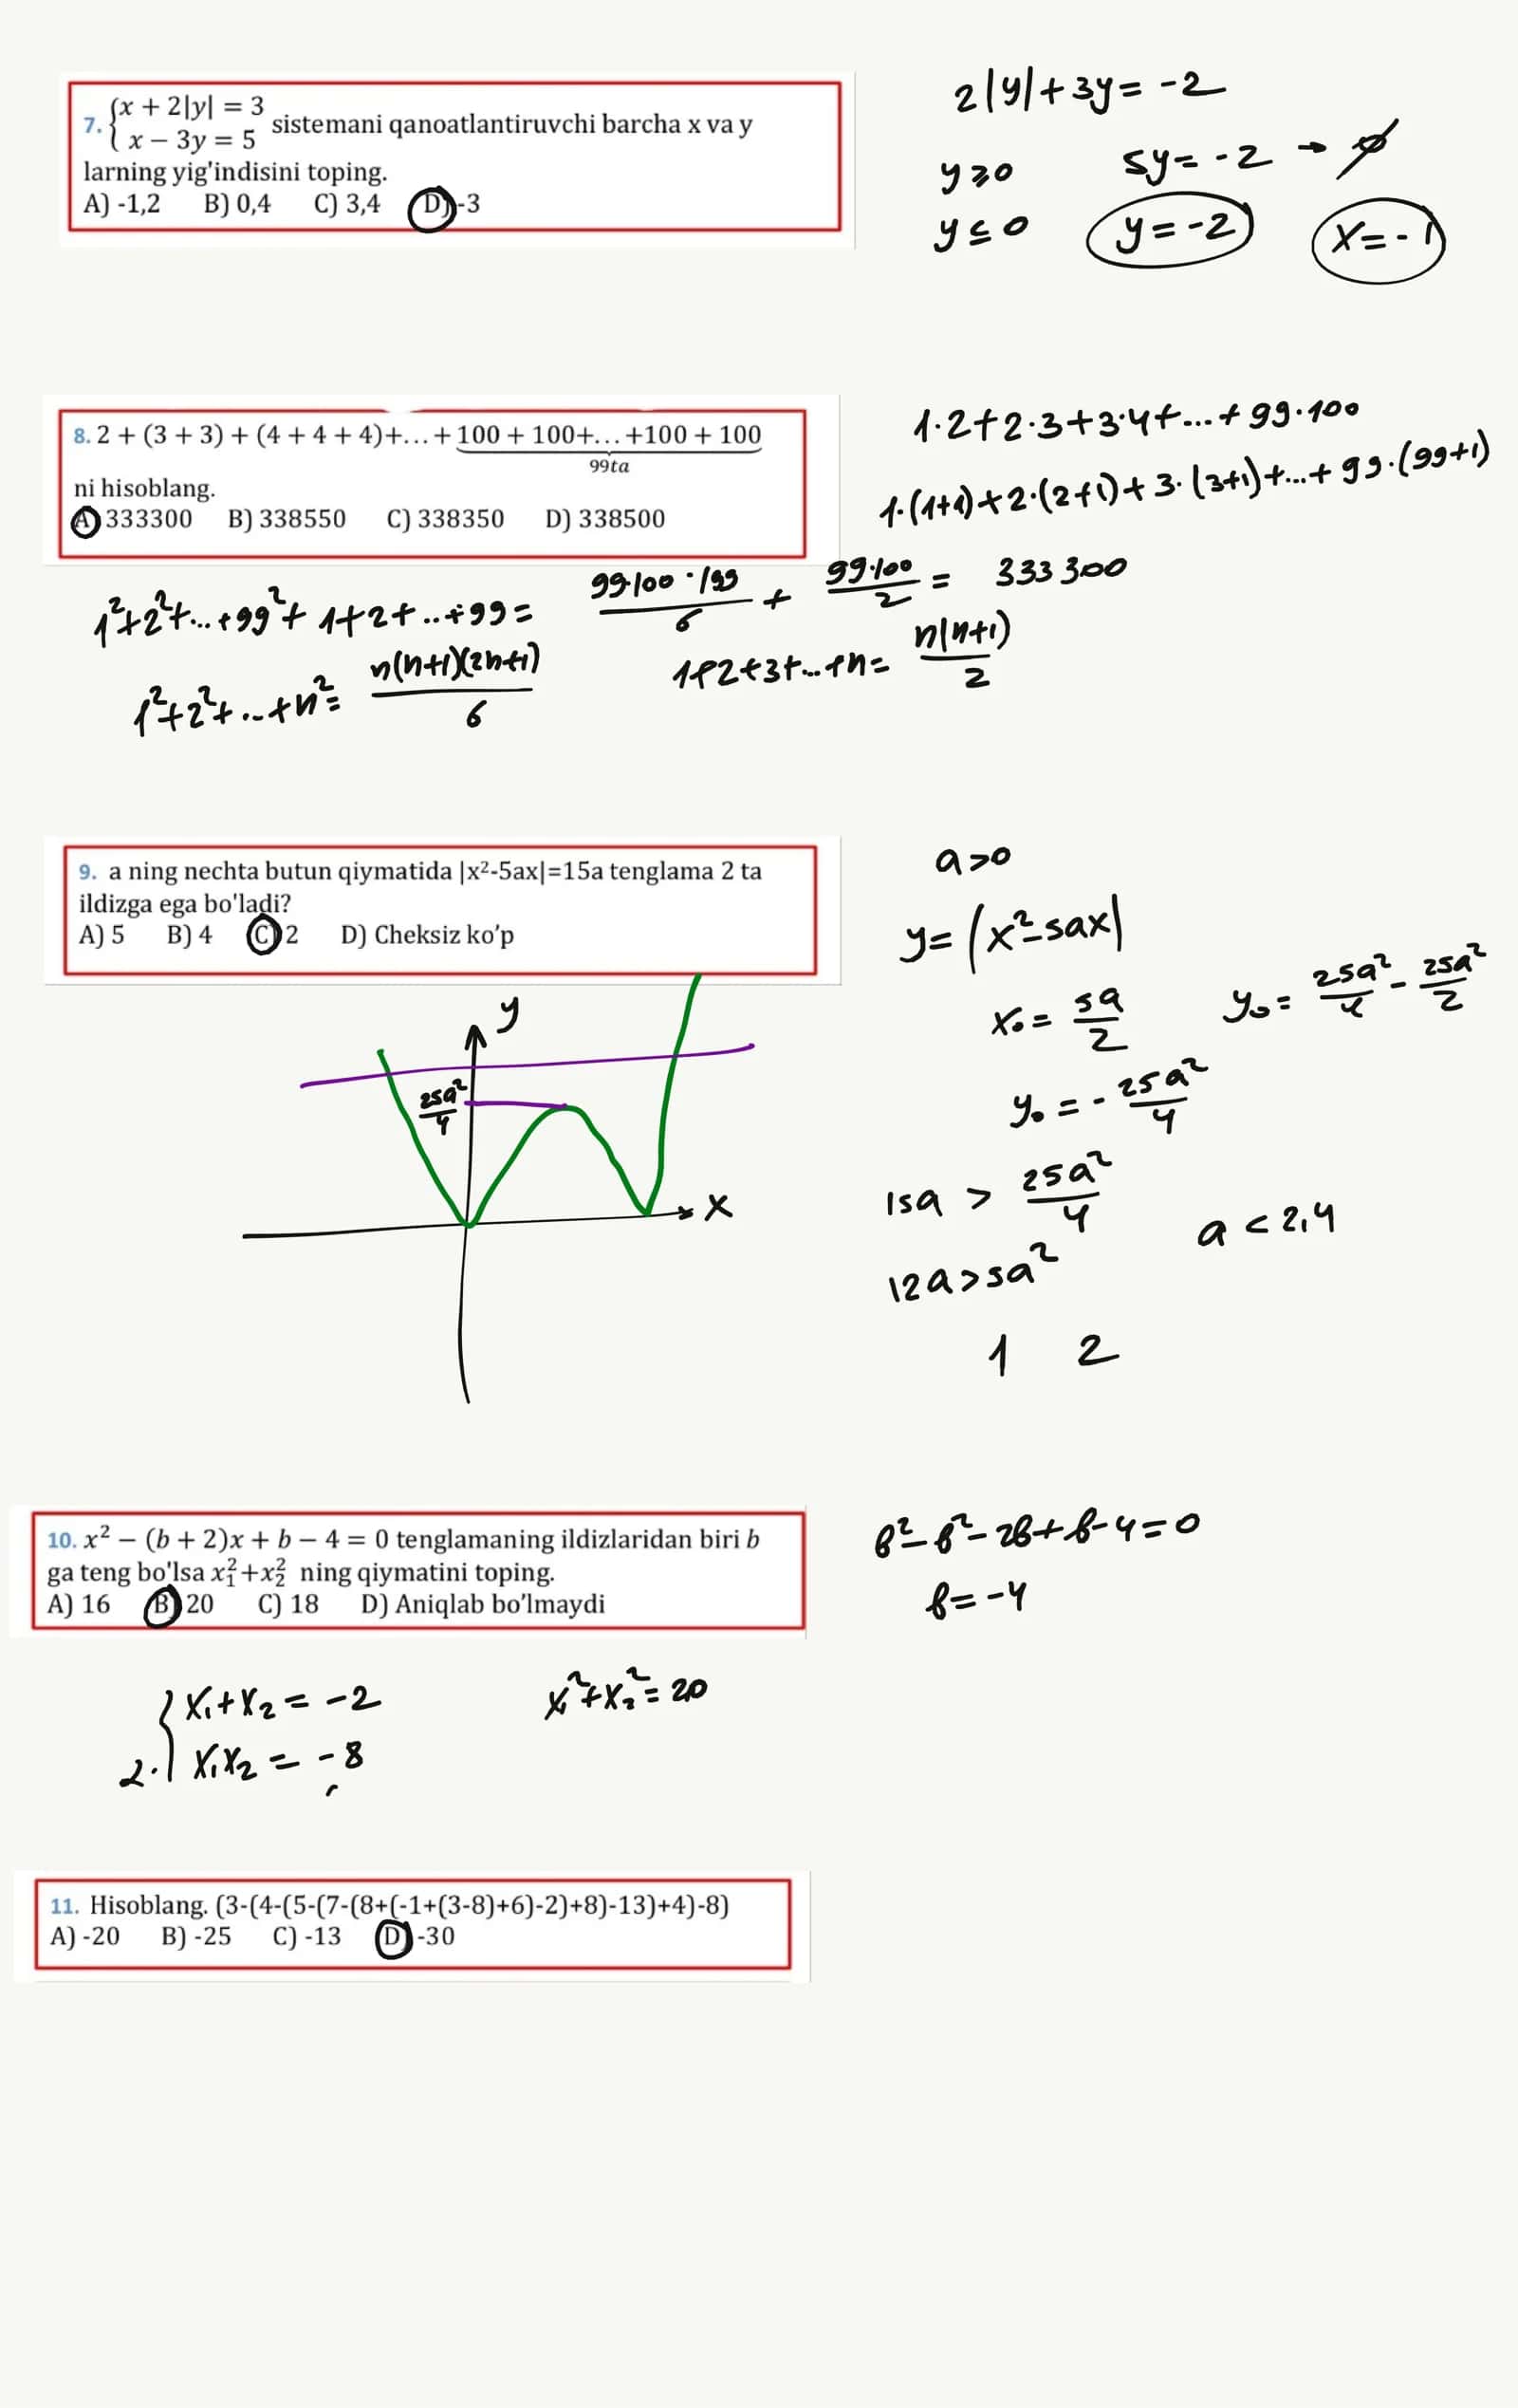 7. {x + 2|y| = 3
x − 3y = 5 sistemani qanoatlantiruvchi barcha x va y
larning yig'indisini toping.
A) -1,2 B) 0,4 C) 3,4 D) -3
2|y|+3y= -2
y⩾0 5y= -2 → ∅
y≤0 y=-2 x=-1
8. 2 + (3 + 3) + (4 + 4 + 4)+...+100 + 100+...+100 + 100
99ta
ni hisoblang.
A) 333300 B) 338550 C) 338350 D) 338500
1·2+2·3+3·4+...+99·100
1·(1+1)+2·(2+1)+3·(3+1)+...+99·(99+1)
1²+2²+...+99²+1+2+..+99= 99·100·199/6 + 99·100/2 = 333300
1²+2²+...+n²= n(n+1)(2n+1)/6 1+2+3+...+n= n(n+1)/2
9. a ning nechta butun qiymatida |x²-5ax|=15a tenglama 2 ta
ildizga ega bo'ladi?
A) 5 B) 4 C) 2 D) Cheksiz ko'p
a>0
y=|x²-5ax|
x₀= 5a/2 y₀= 25a²/4 - 25a²/2
y₀ = - 25a²/4
15a > 25a²/4 a < 2,4
12a>5a²
1 2
y
25a²/4
x
10. x² − (b + 2)x + b − 4 = 0 tenglamaning ildizlaridan biri b
ga teng bo'lsa x₁²+x₂² ning qiymatini toping.
A) 16 B) 20 C) 18 D) Aniqlab bo'lmaydi
b²-b²-2b+b-4=0
b=-4
{x₁+x₂ = -2 x₁²+x₂²=20
2·| x₁x₂ = -8
11. Hisoblang. (3-(4-(5-(7-(8+(-1+(3-8)+6)-2)+8)-13)+4)-8)
A) -20 B) -25 C) -13 D) -30